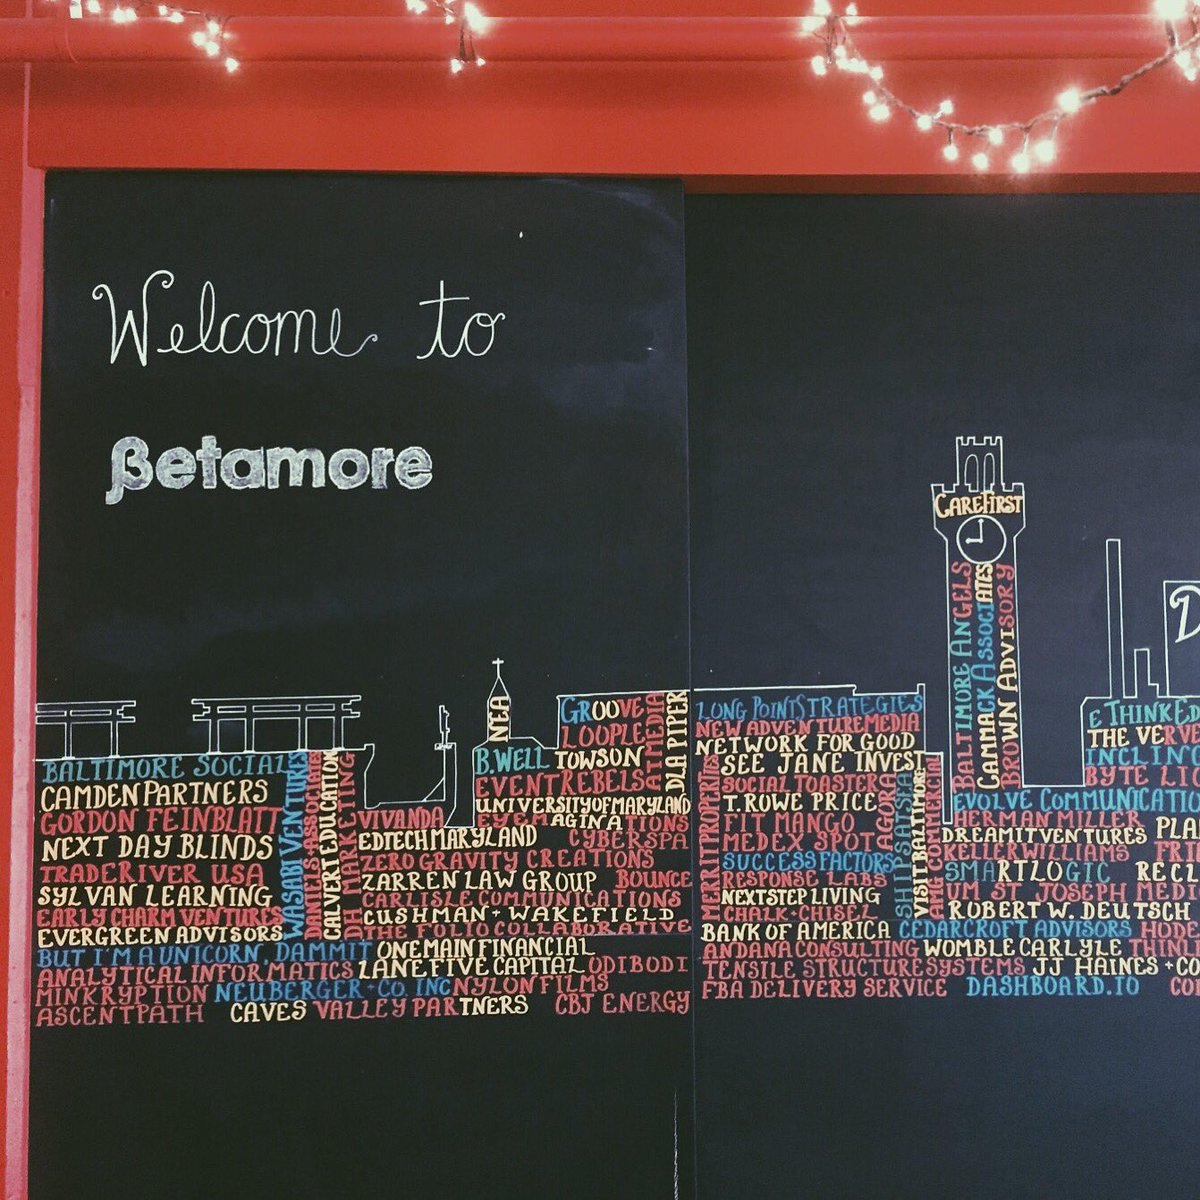 Welcome to
βetamore
CAREFIRST
BALTIMORE ANGELS
CAMMACK ASSOCIATES
BROWN ADVISORY
D
NEA
BALTIMORE SOCIAL
CAMDEN PARTNERS
GORDON FEINBLATT
NEXT DAY BLINDS
TRADERIVER USA
SYLVAN LEARNING
EARLY CHARM VENTURES
EVERGREEN ADVISORS
WASABI VENTURES
DANIELS+ASSOCIATES
CALVERT EDUCATION
DH MARKETING
BUT I'M A UNICORN, DAMMIT
ONEMAIN FINANCIAL
ANALYTICAL INFORMATICS
LANE FIVE CAPITAL
ODIBODI
MINKRYPTION
NEUBERGER+CO. INC
NYLON FILMS
ASCENTPATH
CAVES VALLEY PARTNERS
CBJ ENERGY
GROOVE
LOOPLE
B.WELL
TOWSON
ATMEDIA
DLA PIPER
EVENT REBELS
UNIVERSITY OF MARYLAND
VIVANDA
EYEMAGINATIONS
EDTECH MARYLAND
CYBERSPA
ZERO GRAVITY CREATIONS
ZARREN LAW GROUP
BOUNCE
CARLISLE COMMUNICATIONS
CUSHMAN + WAKEFIELD
THE FOLIO COLLABORATIVE
LONG POINT STRATEGIES
NEW ADVENTURE MEDIA
NETWORK FOR GOOD
SEE JANE INVEST
MERRITT PROPERTIES
SOCIAL TOASTER
T. ROWE PRICE
FIT MANGO
MEDEX SPOT
SUCCESS FACTORS
RESPONSE LABS
NEXTSTEP LIVING
CHALK+CHISEL
AGORA
SHIPSATSEA
VISIT BALTIMORE
AMG COMMERCIAL
BANK OF AMERICA
CEDARCROFT ADVISORS
HODE
ANDANA CONSULTING
WOMBLE CARLYLE
THINL
TENSILE STRUCTURE SYSTEMS
JJ HAINES + CO
FBA DELIVERY SERVICE
DASHBOARD.IO
CO
ETHINKED
THE VERVE
INCLING
BYTE LIG
EVOLVE COMMUNICATIO
HERMAN MILLER
DREAMIT VENTURES
PLA
KELLER WILLIAMS
FRI
SMARTLOGIC
RECL
UM ST JOSEPH MEDI
ROBERT W. DEUTSCH